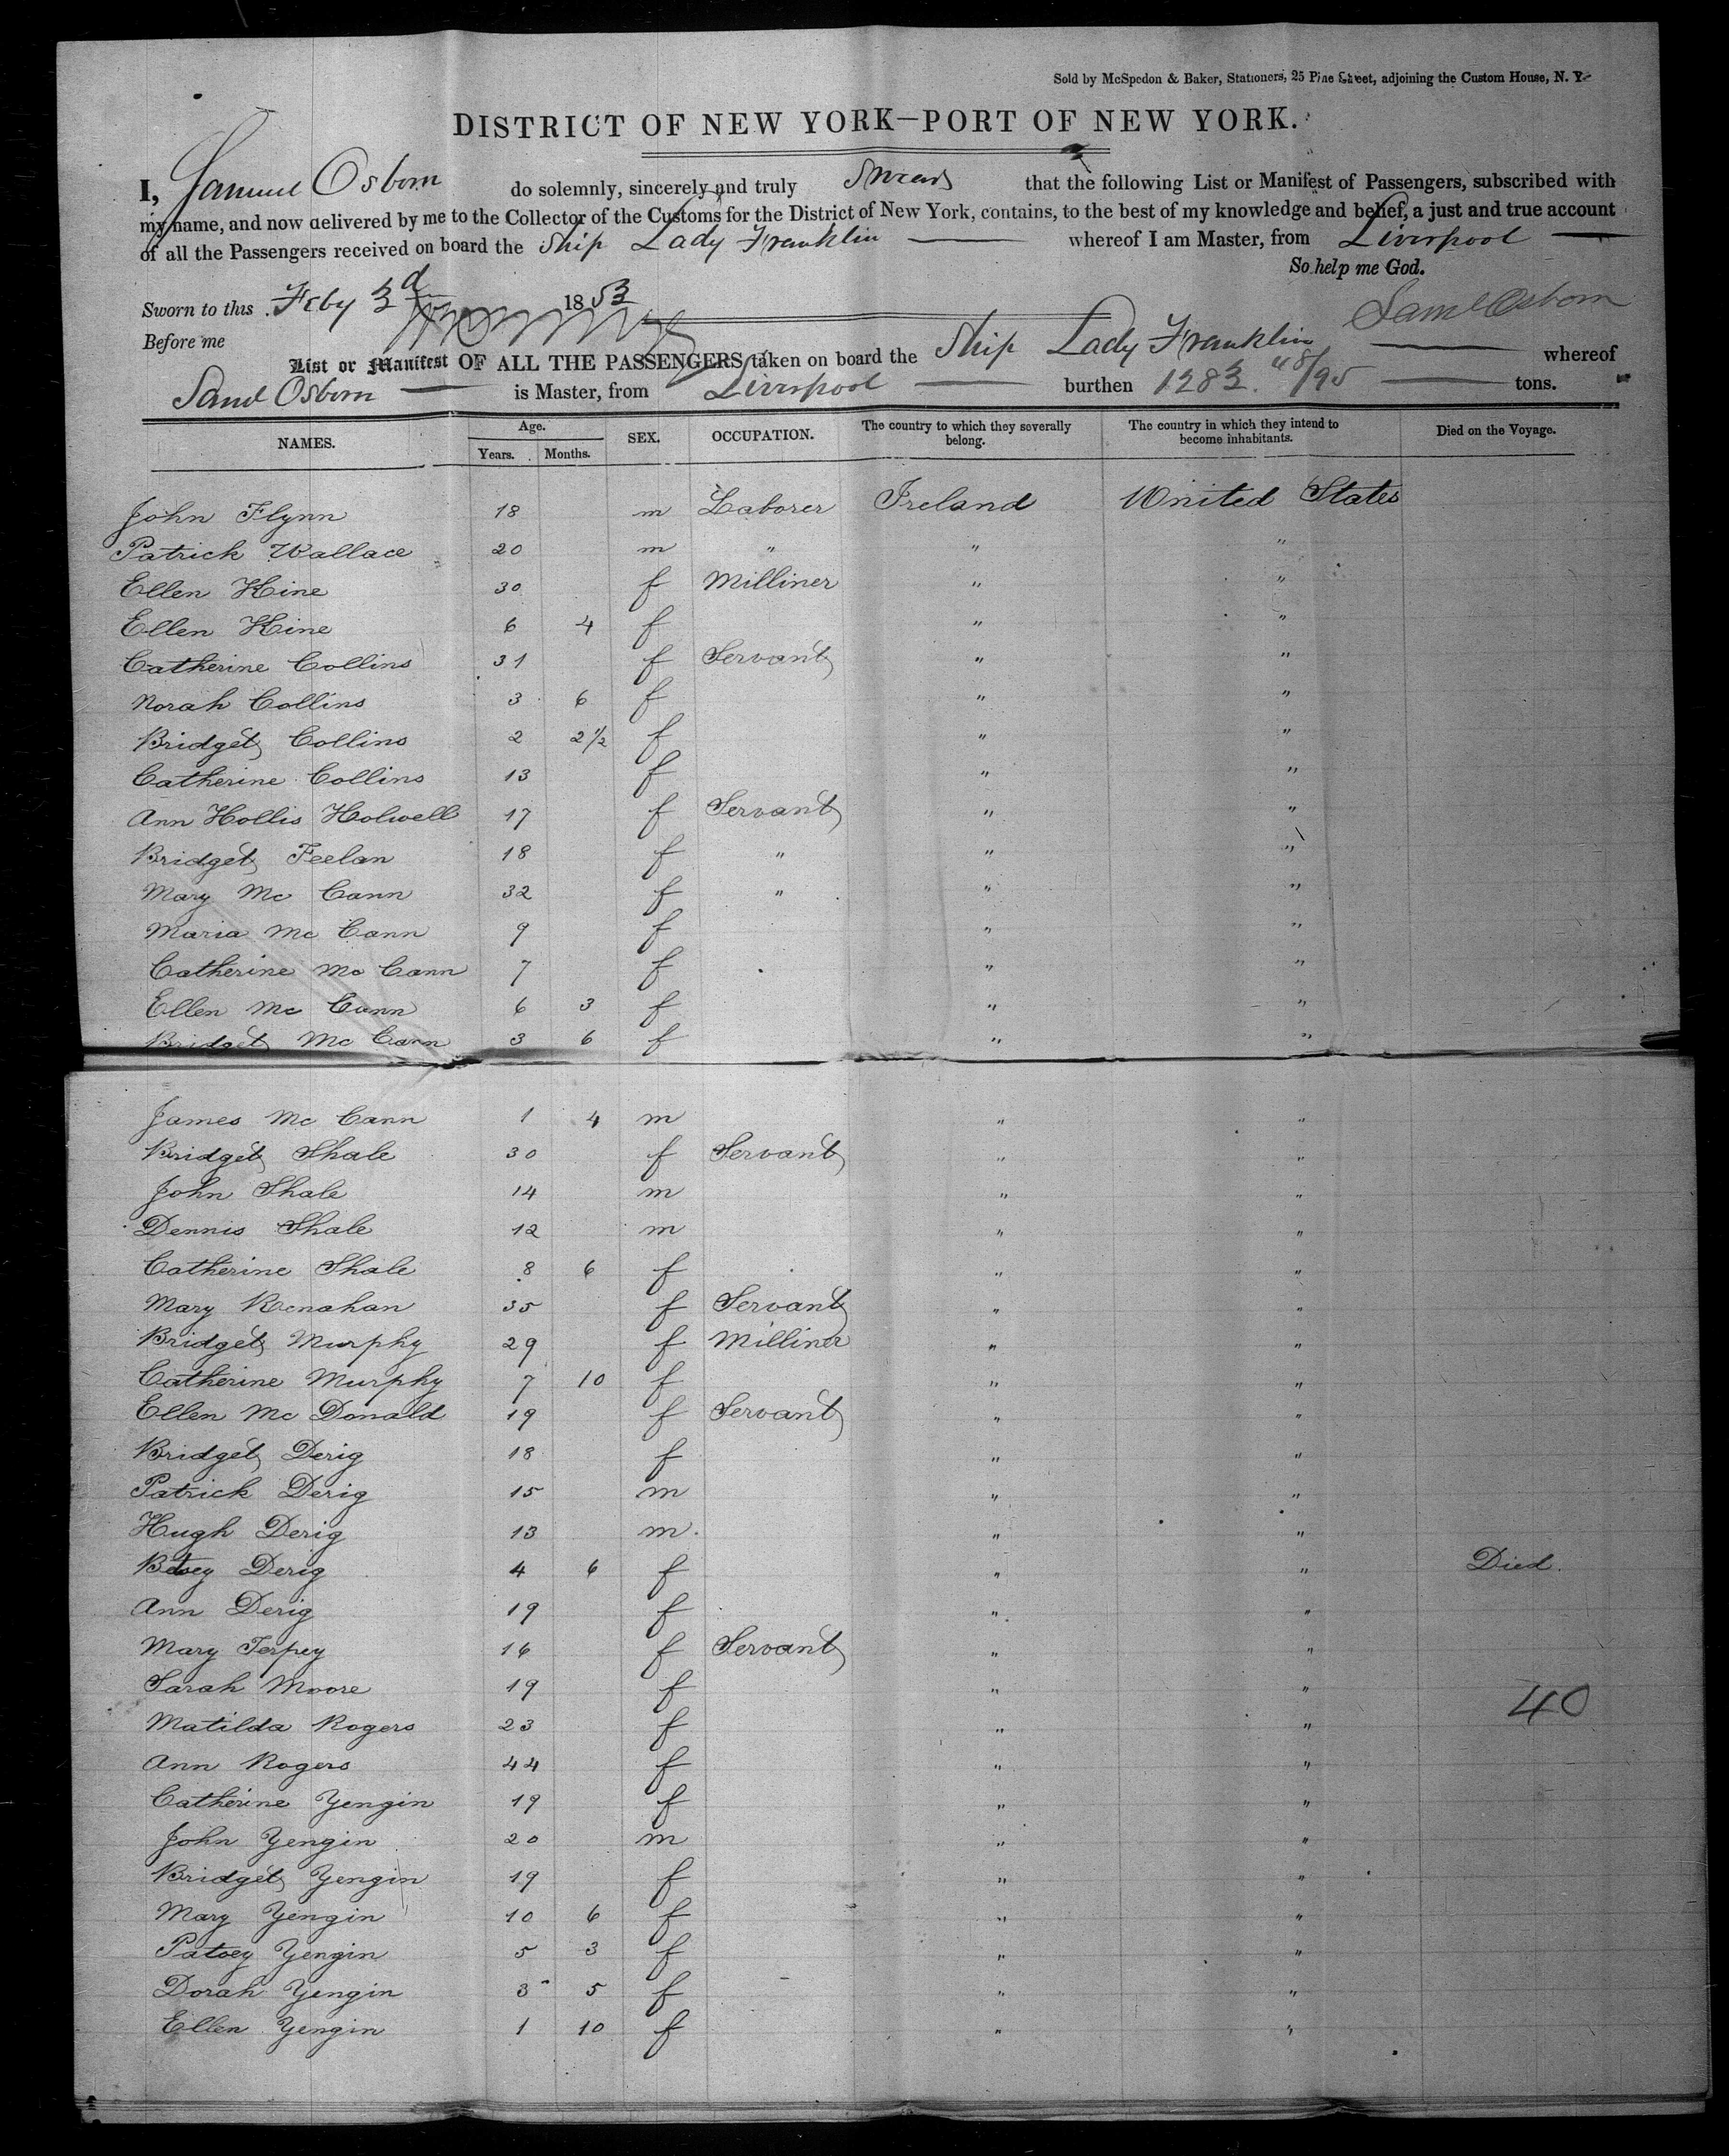 Sold by McSpedon & Baker, Stationers, 25 Pine Street, adjoining the Custom House, N. Y.
DISTRICT OF NEW YORK—PORT OF NEW YORK.
I, Samuel Osborn do solemnly, sincerely and truly Swear that the following List or Manifest of Passengers, subscribed with
my name, and now delivered by me to the Collector of the Customs for the District of New York, contains, to the best of my knowledge and belief, a just and true account
of all the Passengers received on board the Ship Lady Franklin whereof I am Master, from Liverpool
So help me God.
Sworn to this Feby 3d 1853
Saml Osborn
Before me
List or Manifest OF ALL THE PASSENGERS taken on board the Ship Lady Franklin whereof
Saml Osborn is Master, from Liverpool burthen 1283 48/95 tons.
NAMES. Age. Years. Months. SEX. OCCUPATION. The country to which they severally belong. The country in which they intend to become inhabitants. Died on the Voyage.
John Flynn 18 m Laborer Ireland United States
Patrick Wallace 20 m " " "
Ellen Hine 30 f Milliner " "
Ellen Hine 6 4 f " "
Catherine Collins 31 f Servant " "
Norah Collins 3 6 f " "
Bridget Collins 2 2½ f " "
Catherine Collins 13 f " "
Ann Hollis Holwell 17 f Servant " "
Bridget Feelan 18 f " " "
Mary Mc Cann 32 f " " "
Maria Mc Cann 9 f " "
Catherine Mc Cann 7 f " "
Ellen Mc Cann 6 3 f " "
Bridget Mc Cann 3 6 f " "
James Mc Cann 1 4 m " "
Bridget Shale 30 f Servant " "
John Shale 14 m " "
Dennis Shale 12 m " "
Catherine Shale 8 6 f " "
Mary Renahan 35 f Servant " "
Bridget Murphy 29 f Milliner " "
Catherine Murphy 7 10 f " "
Ellen Mc Donald 19 f Servant " "
Bridget Derig 18 f " "
Patrick Derig 15 m " "
Hugh Derig 13 m " "
Betsey Derig 4 6 f " " Died.
Ann Derig 19 f " "
Mary Terpey 16 f Servant " "
Sarah Moore 19 f " "
40
Matilda Rogers 23 f " "
Ann Rogers 44 f " "
Catherine Yengin 19 f " "
John Yengin 20 m " "
Bridget Yengin 19 f " "
Mary Yengin 10 6 f " "
Patsey Yengin 5 3 f " "
Dorah Yengin 3 5 f " "
Ellen Yengin 1 10 f " "